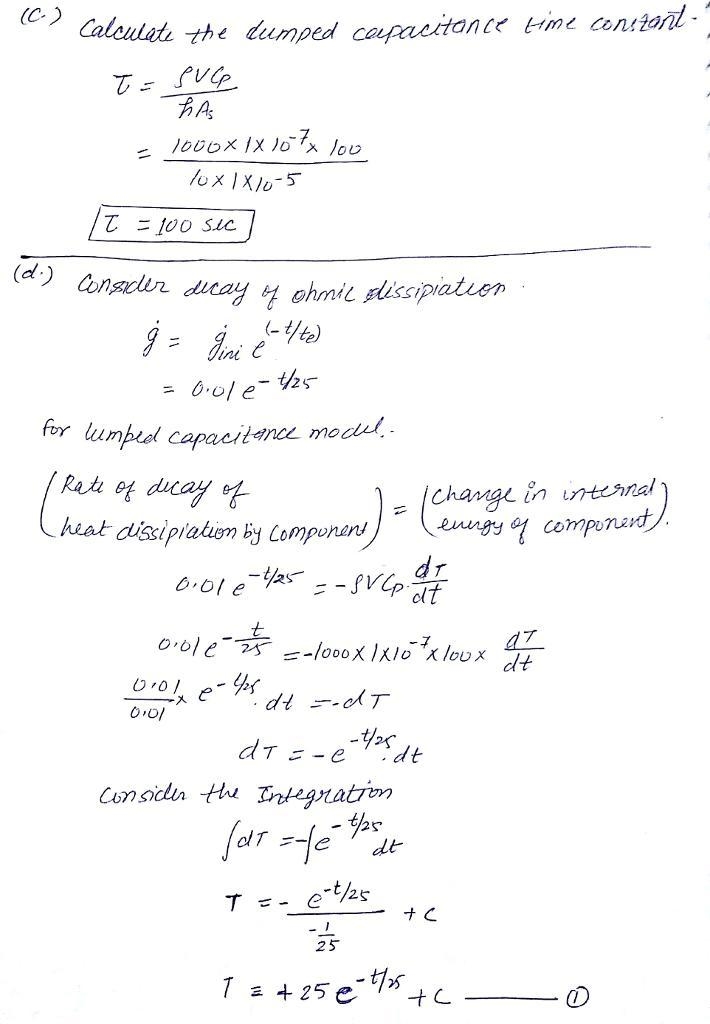 (C.) Calculate the dumped capacitance time constant.
τ = ρVCp / ħAs
= 1000×1×10⁻⁷×100 / 10×1×10⁻⁵
τ = 100 sec
(d.) Consider decay of ohmic dissipiation.
ġ = ġini e^(-t/te)
= 0.01 e^-t/25
for lumped capacitance model.-
(Rate of decay of heat dissipiation by component) = (change in internal energy of component).
0.01 e^-t/25 = -ρVCp. dT/dt
0.01e^-t/25 = -1000×1×10⁻⁷×100× dT/dt
0.01/0.01 × e^-t/25 . dt = -dT
dT = -e^-t/25. dt
Consider the Integration
∫dT = -∫e^-t/25 dt
T = - e^-t/25 / -1/25 + C
T = +25 e^-t/25 + C —— ①